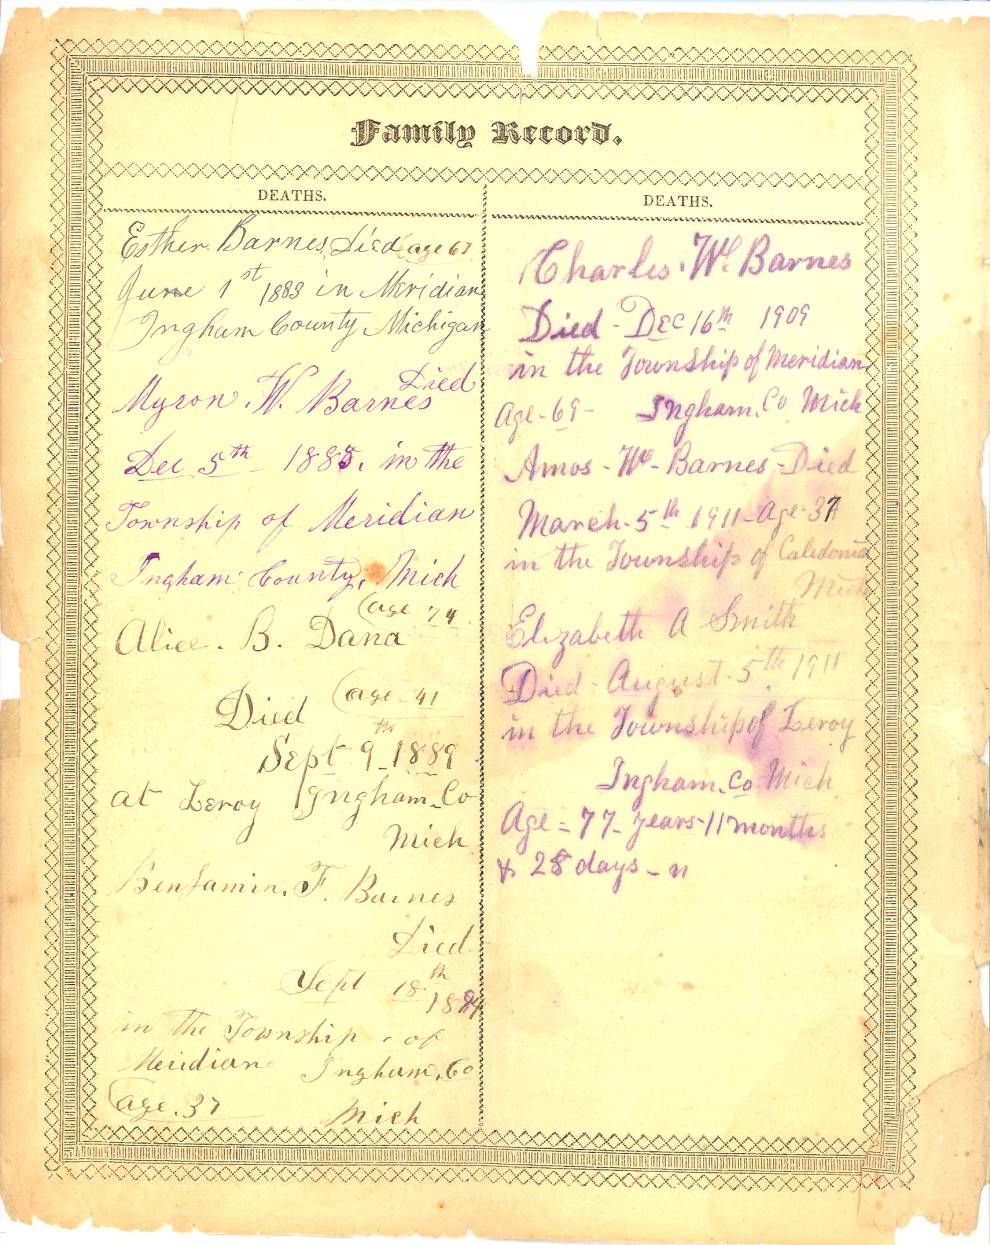 Family Record.
DEATHS.
Esther Barnes Died (age 67
June 1st 1883 in Meridian
Ingham County Michigan
Died
Myron. W. Barnes
Dec 5th 1883. in the
Township of Meridian
Ingham County, Mich
(age 74
Alice. B. Dana
Died (age - 41
Sept 9th 1889
at Leroy Ingham Co
Mich
Benjamin. F. Barnes
Died
Sept 18th
in the Township of
Meridian Ingham. Co
(age. 37 Mich
DEATHS.
Charles. Wl Barnes
Died - Dec 16th 1909
in the Township of Meridian
Age - 69 - Ingham. Co Mich
Amos - - Barnes - Died
March - 5th 1911 - Age - 37
in the Township of Caledonia
Mich
Elizabeth A Smith
Died - August - 5th 1911
in the Township of Leroy
Ingham. Co Mich
Age = 77 - years - 11 months
& 28 days - "